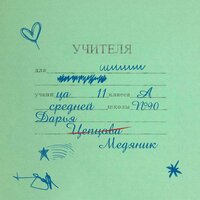 УЧИТЕЛЯ
для
учени ца 11 класса А
средней школы №90
Дарья
Цепцова
Медяник